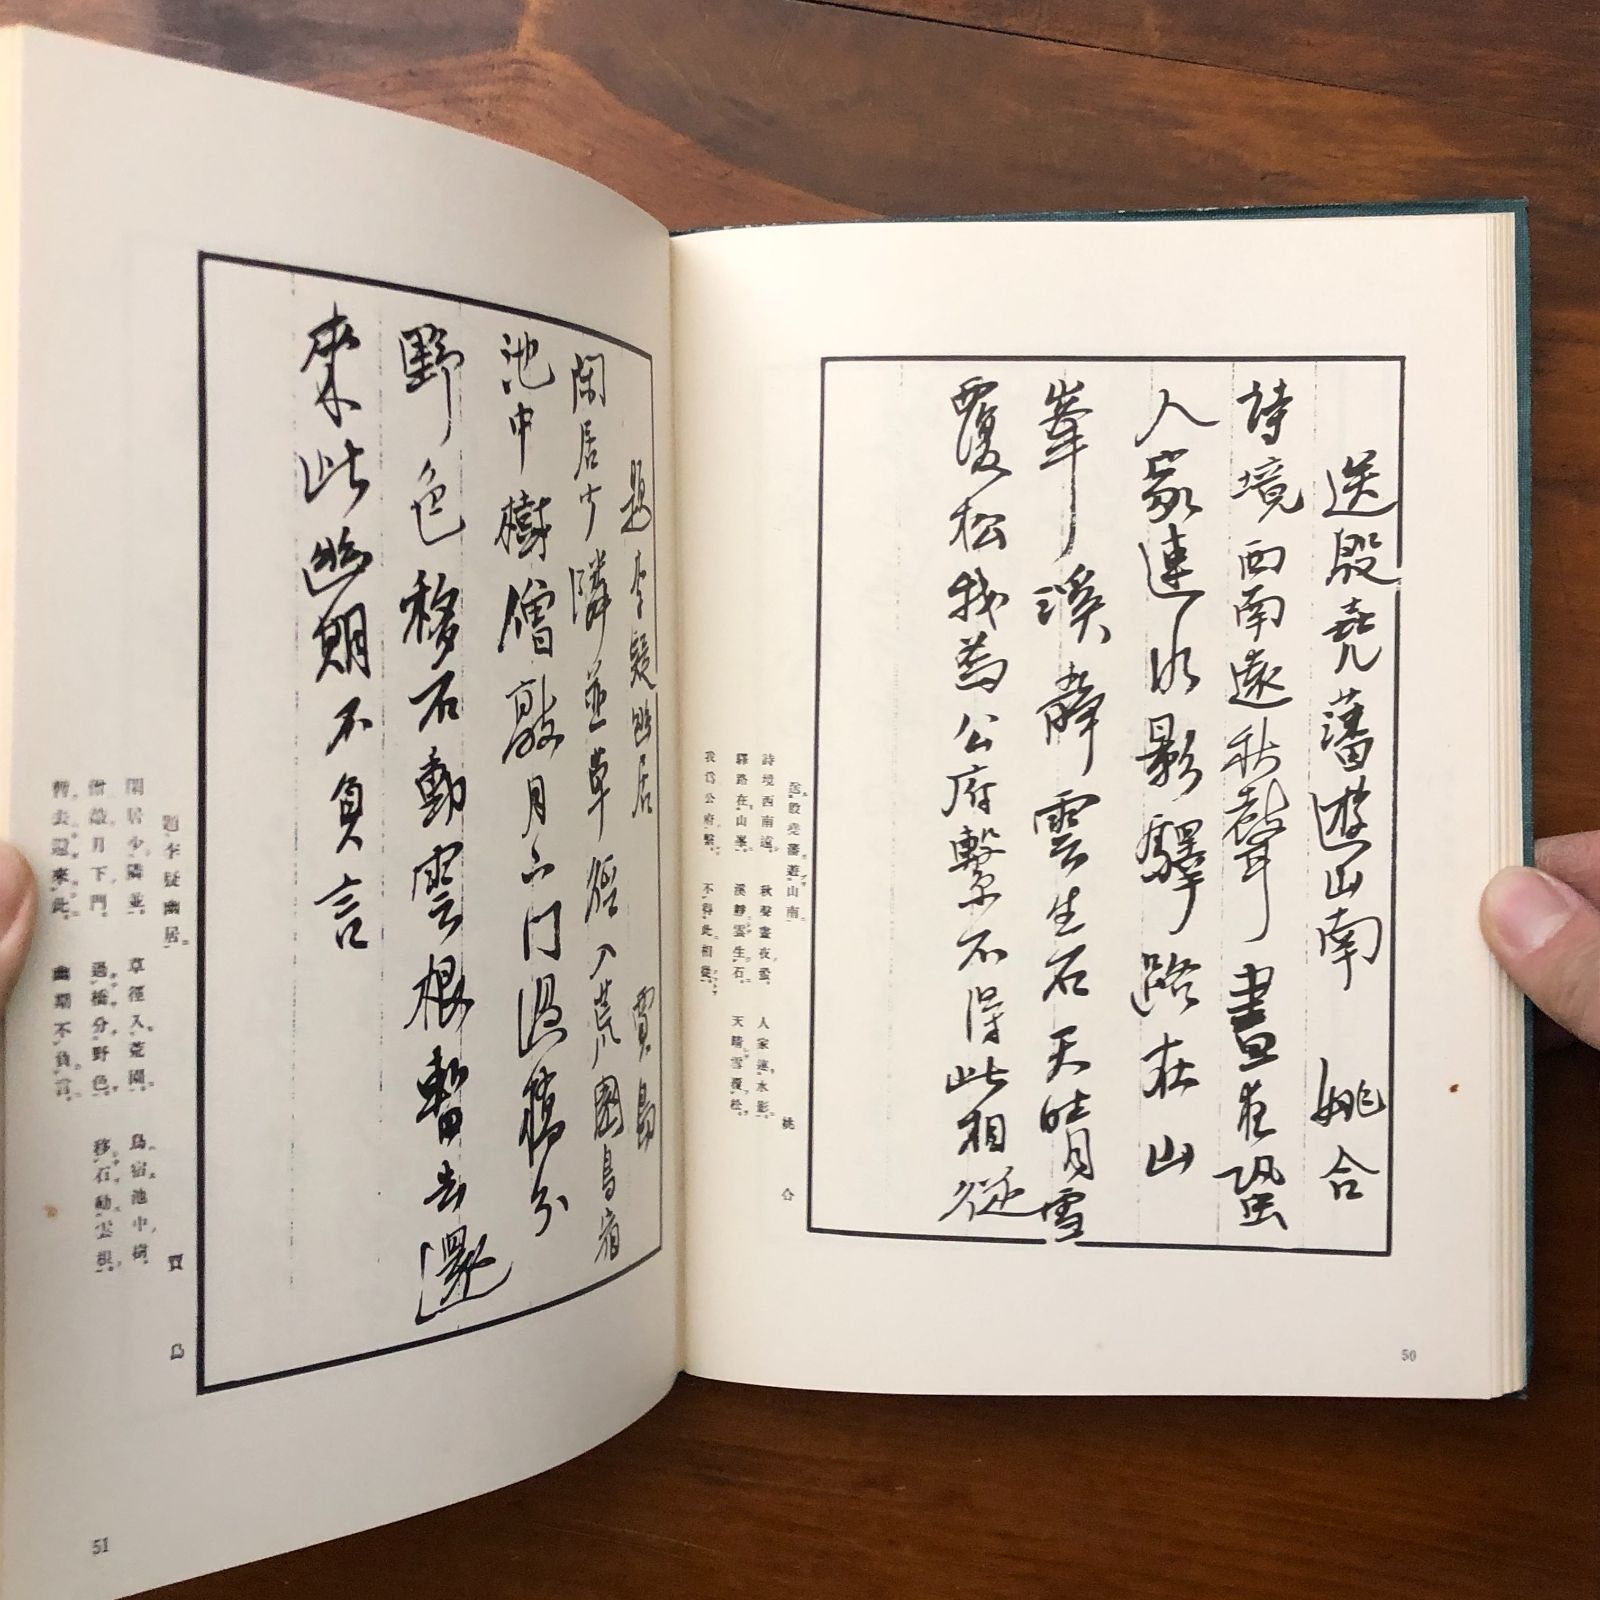 送殷堯藩遊山南 姚合
詩境西南遠秋聲晝夜蛩
人家連水影驛路在山
峯溪靜雲生石天晴雪
覆松我為公府繫不得此相從
送殷堯藩遊山南 姚合
詩境西南遠 秋聲晝夜蛩 人家連水影
驛路在山峯 溪靜雲生石 天晴雪覆松
我爲公府繫 不得此相從
50
題李疑幽居 賈島
閑居少隣並草徑入荒園鳥宿
池中樹僧敲月下門過橋分
野色移石動雲根暫去還
來此幽期不負言
題李疑幽居 賈島
閑居少隣並 草徑入荒園 鳥宿池中樹
僧敲月下門 過橋分野色 移石動雲根
暫去還來此 幽期不負言
51